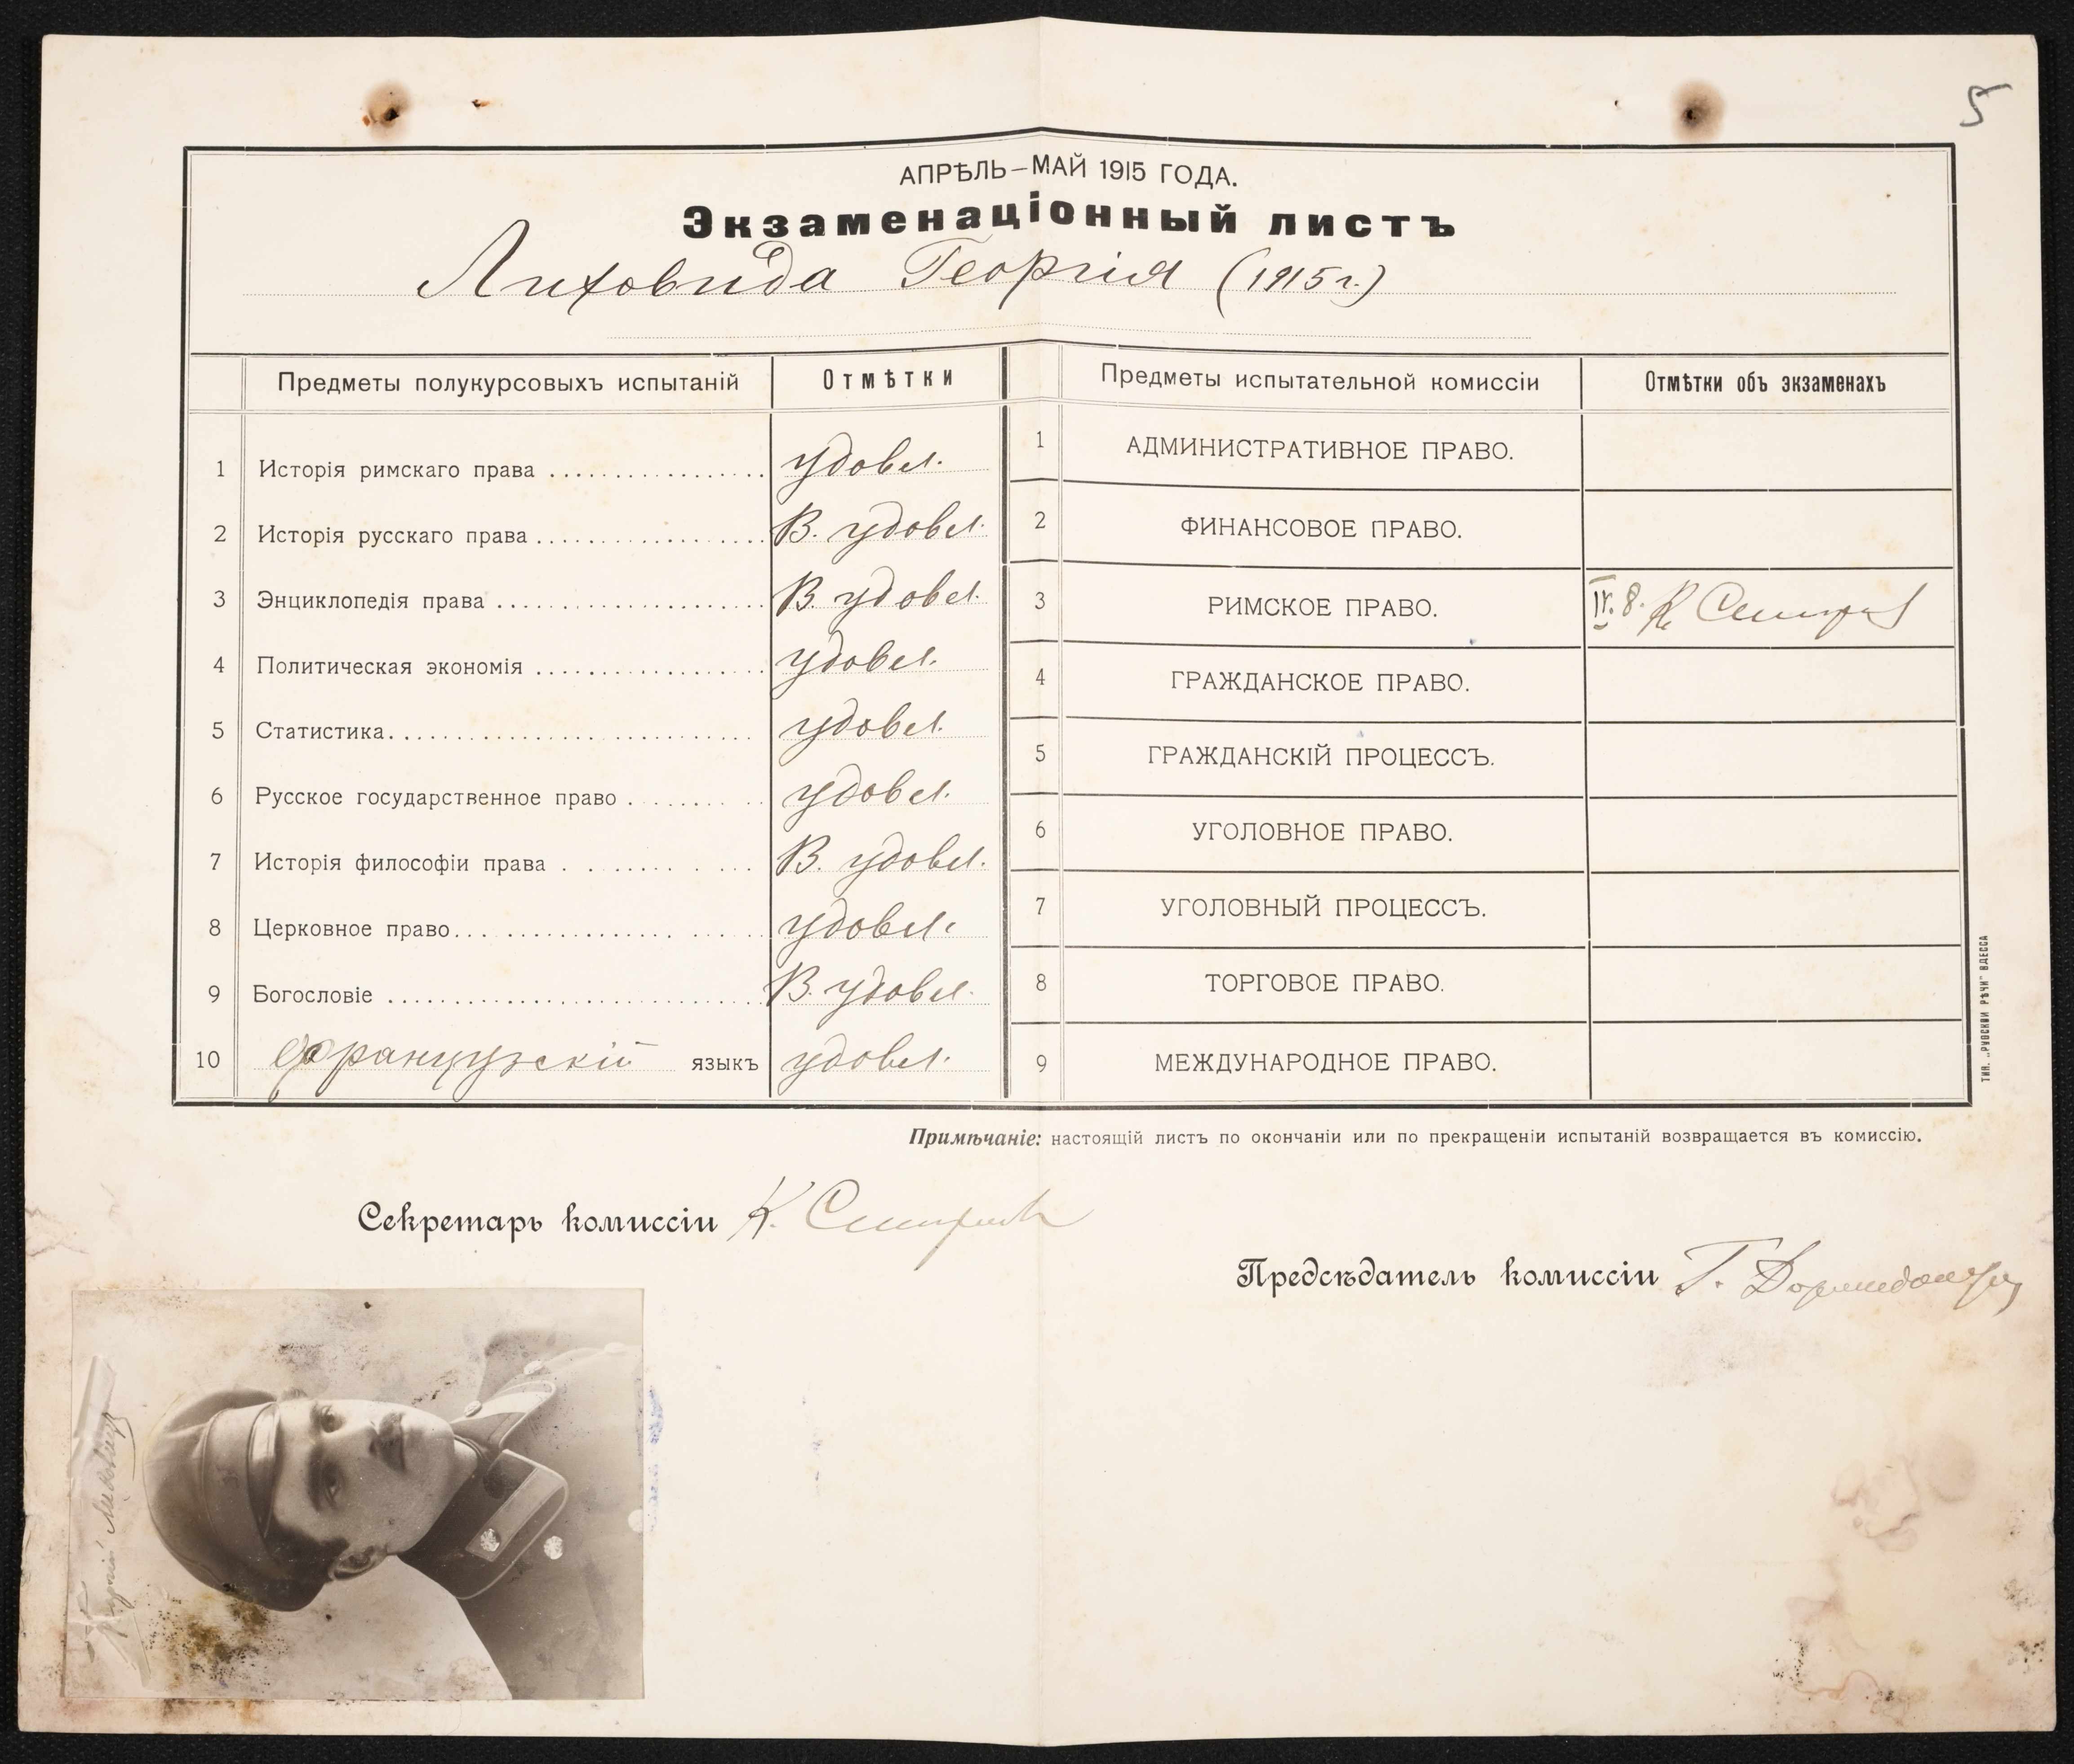 5
АПРѢЛЬ–МАЙ 1915 ГОДА.
Экзаменаціонный листъ
Лиховида Георгія (1915 г.)
Предметы полукурсовыхъ испытаній Отмѣтки
1 Исторія римскаго права удовл.
2 Исторія русскаго права В. удовл.
3 Энциклопедія права В. удовл.
4 Политическая экономія удовл.
5 Статистика удовл.
6 Русское государственное право удовл.
7 Исторія философіи права В. удовл.
8 Церковное право удовл.
9 Богословіе В. удовл.
10 французскій языкъ удовл.
Предметы испытательной комиссіи Отмѣтки объ экзаменахъ
1 АДМИНИСТРАТИВНОЕ ПРАВО.
2 ФИНАНСОВОЕ ПРАВО.
3 РИМСКОЕ ПРАВО. IV. 8. К Смирнов
4 ГРАЖДАНСКОЕ ПРАВО.
5 ГРАЖДАНСКІЙ ПРОЦЕССЪ.
6 УГОЛОВНОЕ ПРАВО.
7 УГОЛОВНЫЙ ПРОЦЕССЪ.
8 ТОРГОВОЕ ПРАВО.
9 МЕЖДУНАРОДНОЕ ПРАВО.
Примѣчаніе: настоящій листъ по окончаніи или по прекращеніи испытаній возвращается въ комиссію.
Секретарь комиссіи К. Смирнов
Предсѣдатель комиссіи Г.
Георгій Лиховидъ